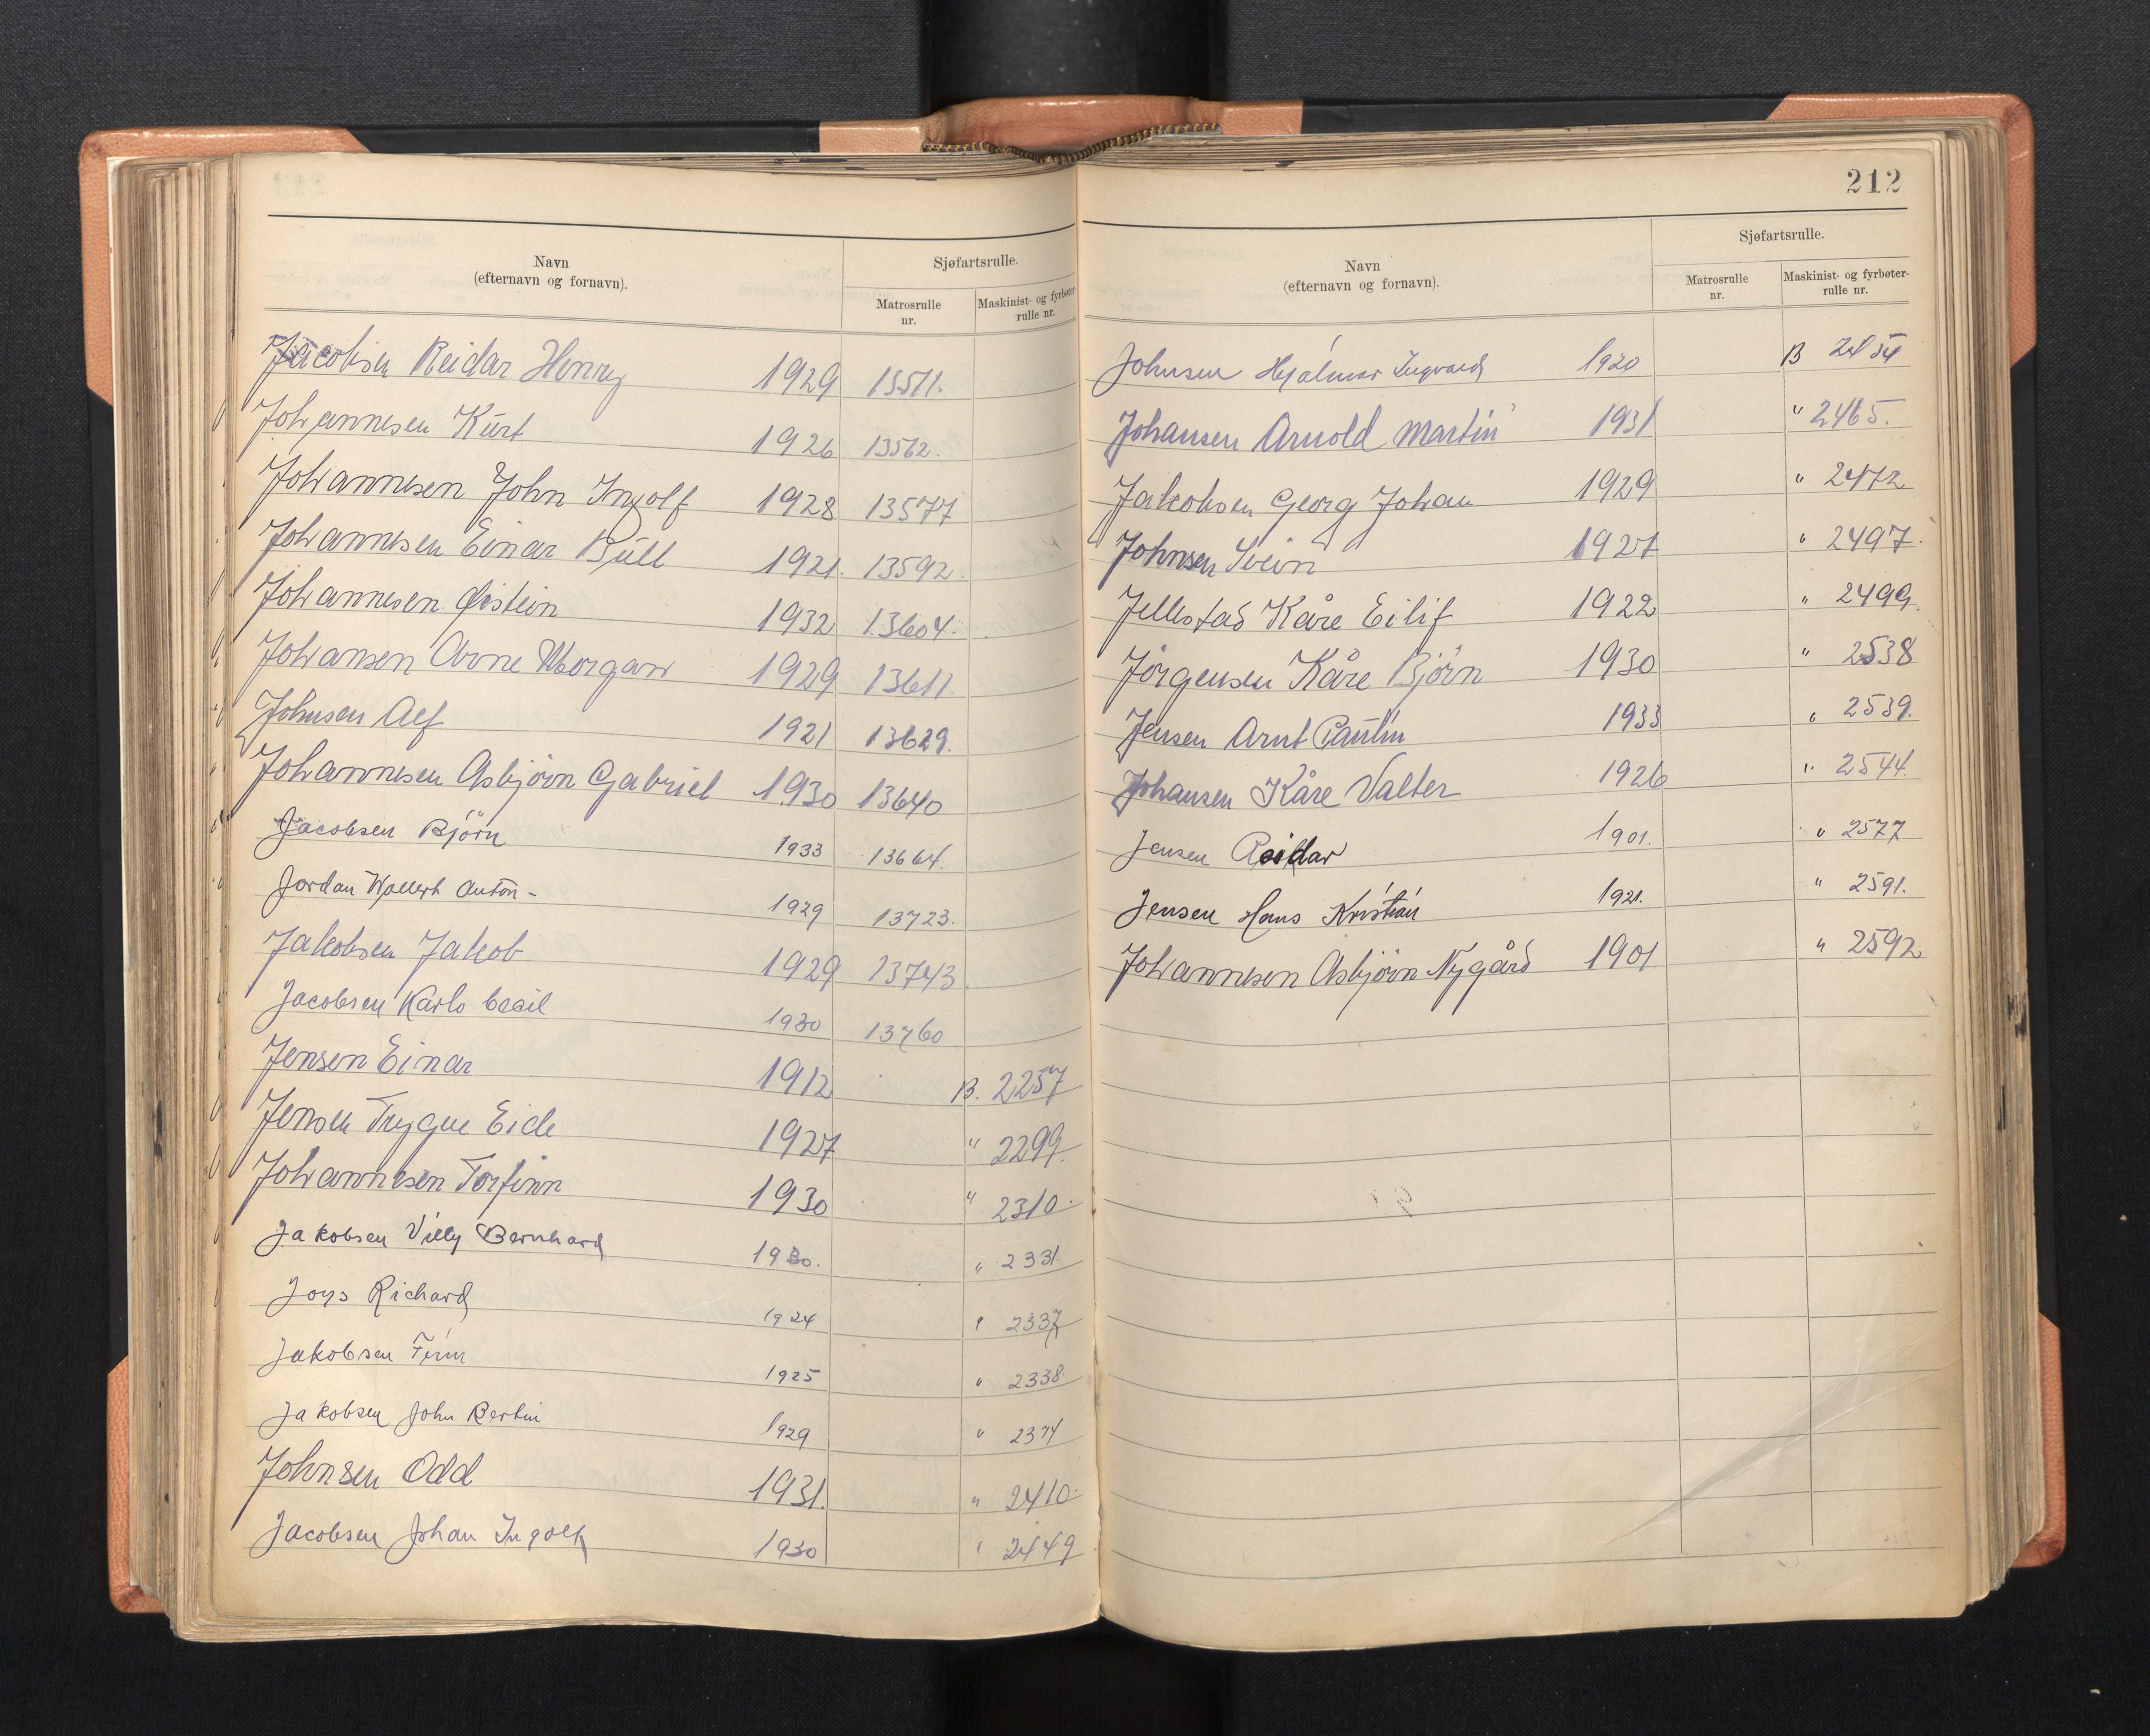 Navn
(efternavn og fornavn).
Sjøfartsrulle.
Matrosrulle nr.
Maskinist- og fyrbøter-rulle nr.
Jacobsen Reidar Henry 1929 13511.
Johannesen Kurt 1926 13562.
Johannesen John Ingolf 1928 13577
Johannesen Einar Bull 1921. 13592.
Johannesen Øistein 1932 13604.
Johansen Arne Morgan 1929 13611.
Johnsen Alf 1921 13629.
Johannesen Asbjörn Gabriel 1930 13640
Jacobsen Björn 1933 13664.
Jordan Anton - 1929 13723.
Jakobsen Jakob 1929 13743.
Jacobsen Karlo 1930 13760
Jensen Einar 1912 B. 2257
Jensen Trygve Eide 1927 " 2299.
Johannesen Torfinn 1930 " 2310.
Jakobsen Villy Bernhard 1930. " 2331.
Joys Richard 1924 " 2337
Jakobsen Finn 1925 " 2338
Jakobsen John Bertin 1929 " 2374
Johnsen Odd 1931. " 2410.
Jacobsen Johan Ingolf 1930 " 2449
212
Navn
(efternavn og fornavn).
Sjøfartsrulle.
Matrosrulle nr.
Maskinist- og fyrbøter-rulle nr.
Johnsen Hjalmar Ingvard 1920 B 2454
Johansen Arnold Martin 1931 " 2465.
Jakobsen Georg Johan 1929 " 2472
Johnsen Svein 1927 " 2497.
Jellestad Kåre Eilif 1922 " 2499.
Jörgensen Kåre Björn 1930 " 2538
Jensen Arnt Paulin 1933 " 2539.
Johansen Kåre Valter 1926 " 2544.
Jensen Reidar 1901. " 2577
Jensen Hans Kristian 1921. " 2591.
Johannesen Asbjörn Nygård 1901 " 2592.